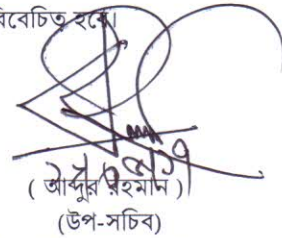 বিবেচিত হবে।
( আব্দুর রহমান )
(উপ-সচিব)